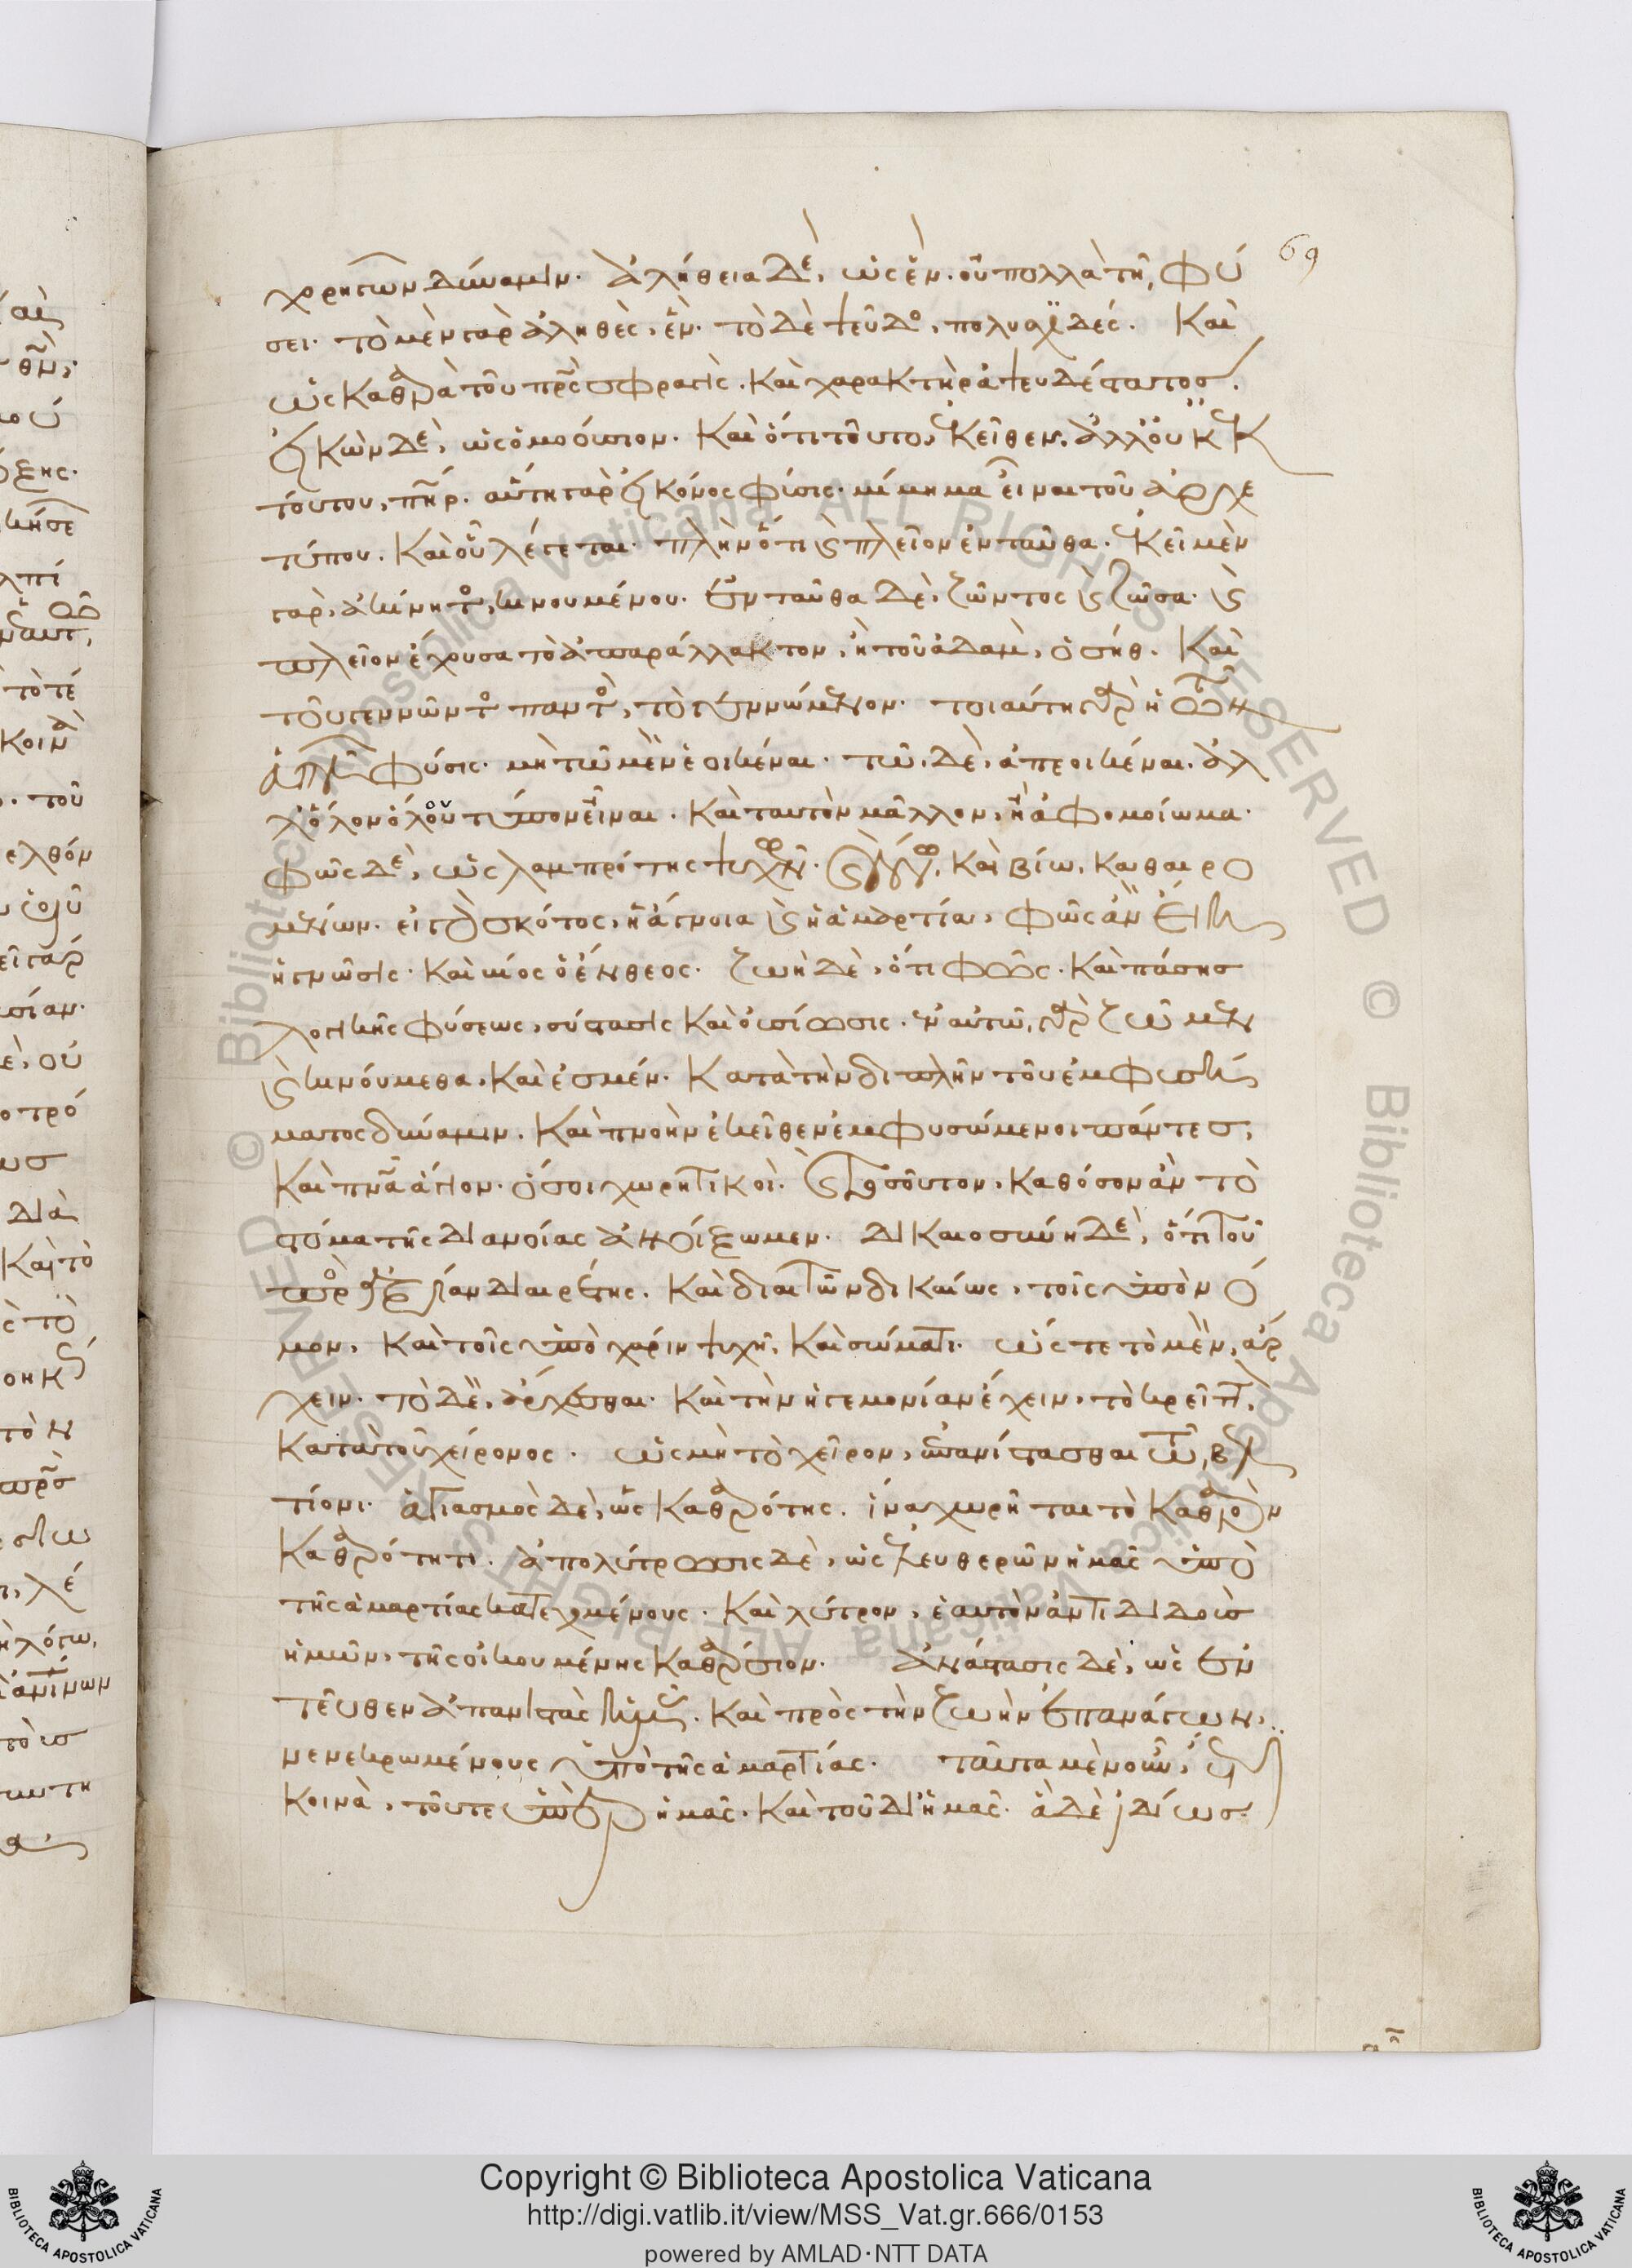 69
χορηγῶν δύναμιν. ἀλήθεια δὲ, ὡς ἕν. οὐ πολλὰ τῆ φύ
σει. τὸ μὲν γὰρ ἀληθὲς, ἕν. τὸ δὲ ψεῦδος, πολυσχιδές. καὶ
ὡς καθαρὰ τοῦ πρς σφραγὶς. καὶ χαρακτὴρ ἀψευδέστατος.
εἰκὼν δὲ, ὡς ὁμοούσιον. καὶ ὅτι τοῦτο, ἐκεῖθεν, ἀλλ' οὐκ ἐκ
τούτου, πηρ. αὕτη γὰρ εἰκόνος φύσις. μίμημα εἶναι τοῦ ἀρχε
τύπου. καὶ οὗ λέγεται. πλὴν ὅτι καὶ πλεῖον ἐνταῦθα. ἐκεῖ μὲν
γὰρ, ἀκίνητος, κινουμένου. ἐνταῦθα δὲ, ζῶντος καὶ ζῶσα. καὶ
πλεῖον ἔχουσα τὸ ἀπαράλλακτον, ἢ τοῦ ἀδὰμ, ὁ σήθ. καὶ
τοῦ γεννῶντος παντὸς, τὸ γεννώμενον. τοιαύτη γὰρ ἡ τῶν
ἁπλῶν φύσις. μὴ τῶ μὲν ἐοικέναι. τῶ δὲ, ἀπεοικέναι. ἀλ
λ' ὅλον ὅλου τύπον εἶναι. καὶ ταυτὸν μᾶλλον, ἢ ἀφομοίωμα.
φῶς δὲ, ὡς λαμπρότης ψυχῶν. καὶ λόγω, καὶ βίω, καθαιρο
μένων. εἰ γὰρ σκότος, ἡ ἄγνοια καὶ ἡ ἁμαρτία, φῶς ἂν εἴη
ἡ γνῶσις. καὶ βίος ὁ ἔνθεος. ζωὴ δὲ, ὅτι φῶς. καὶ πάσης
λογικῆς φύσεως, σύστασις καὶ οὐσίωσις. ἐν αὐτῶ γὰρ ζῶμεν
καὶ κινούμεθα, καὶ ἐσμέν. κατὰ τὴν διπλῆν τοῦ ἐμφυσή
ματος δύναμιν. καὶ πνοὴν ἐκεῖθεν ἐμφυσώμενοι πάντες,
καὶ πνα ἅγιον. ὅσοι χωρητικοὶ. καὶ τοσοῦτον, καθόσον ἂν τὸ
στόμα τῆς διανοίας ἀνοίξωμεν. δικαιοσύνη δὲ, ὅτι τοῦ
πρὸς ἀξίαν διαιρέτης. καὶ διαιτῶν δικαίως, τοῖς ὑπὸ νό
μον, καὶ τοῖς ὑπὸ χάριν ψυχῆ, καὶ σώματι. ὥστε τὸ μὲν, ἄρ
χειν. τὸ δὲ, ἄρχεσθαι. καὶ τὴν ἡγεμονίαν ἔχειν, τὸ κρεῖττον
κατὰ τοῦ χείρονος. ὡς μὴ τὸ χεῖρον, ἐπανίστασθαι τῶ βελ
τίονι. ἁγιασμὸς δὲ, ὡς καθαρότης. ἵνα χωρῆται τὸ καθαρὸν
καθαρότητι. ἀπολύτρωσις δὲ, ὡς ἐλευθερῶν ἡμᾶς ὑπὸ
τῆς ἁμαρτίας κατεχομένους. καὶ λύτρον, ἑαυτὸν ἀντιδιδοὺς
ἡμῶν, τῆς οἰκουμένης καθάρσιον. ἀνάστασις δὲ, ὡς ἐν
τεῦθεν ἀπανιστὰς ἡμᾶς. καὶ πρὸς τὴν ζωὴν ἐπανάγων,
νενεκρωμένους ὑπὸ τῆς ἁμαρτίας. ταῦτα μὲν οὖν, ἔτι
κοινὰ, τοῦ τε ὑπὲρ ἡμᾶς. καὶ τοῦ δι' ἡμᾶς. ἃ δὲ ἰδίως
Copyright © Biblioteca Apostolica Vaticana
http://digi.vatlib.it/view/MSS_Vat.gr.666/0153
powered by AMLAD·NTT DATA